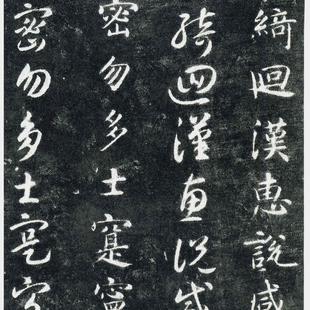 綺迴漢惠說感
綺迴漢惠說感
密勿多士寔寧
密勿多士寔寧